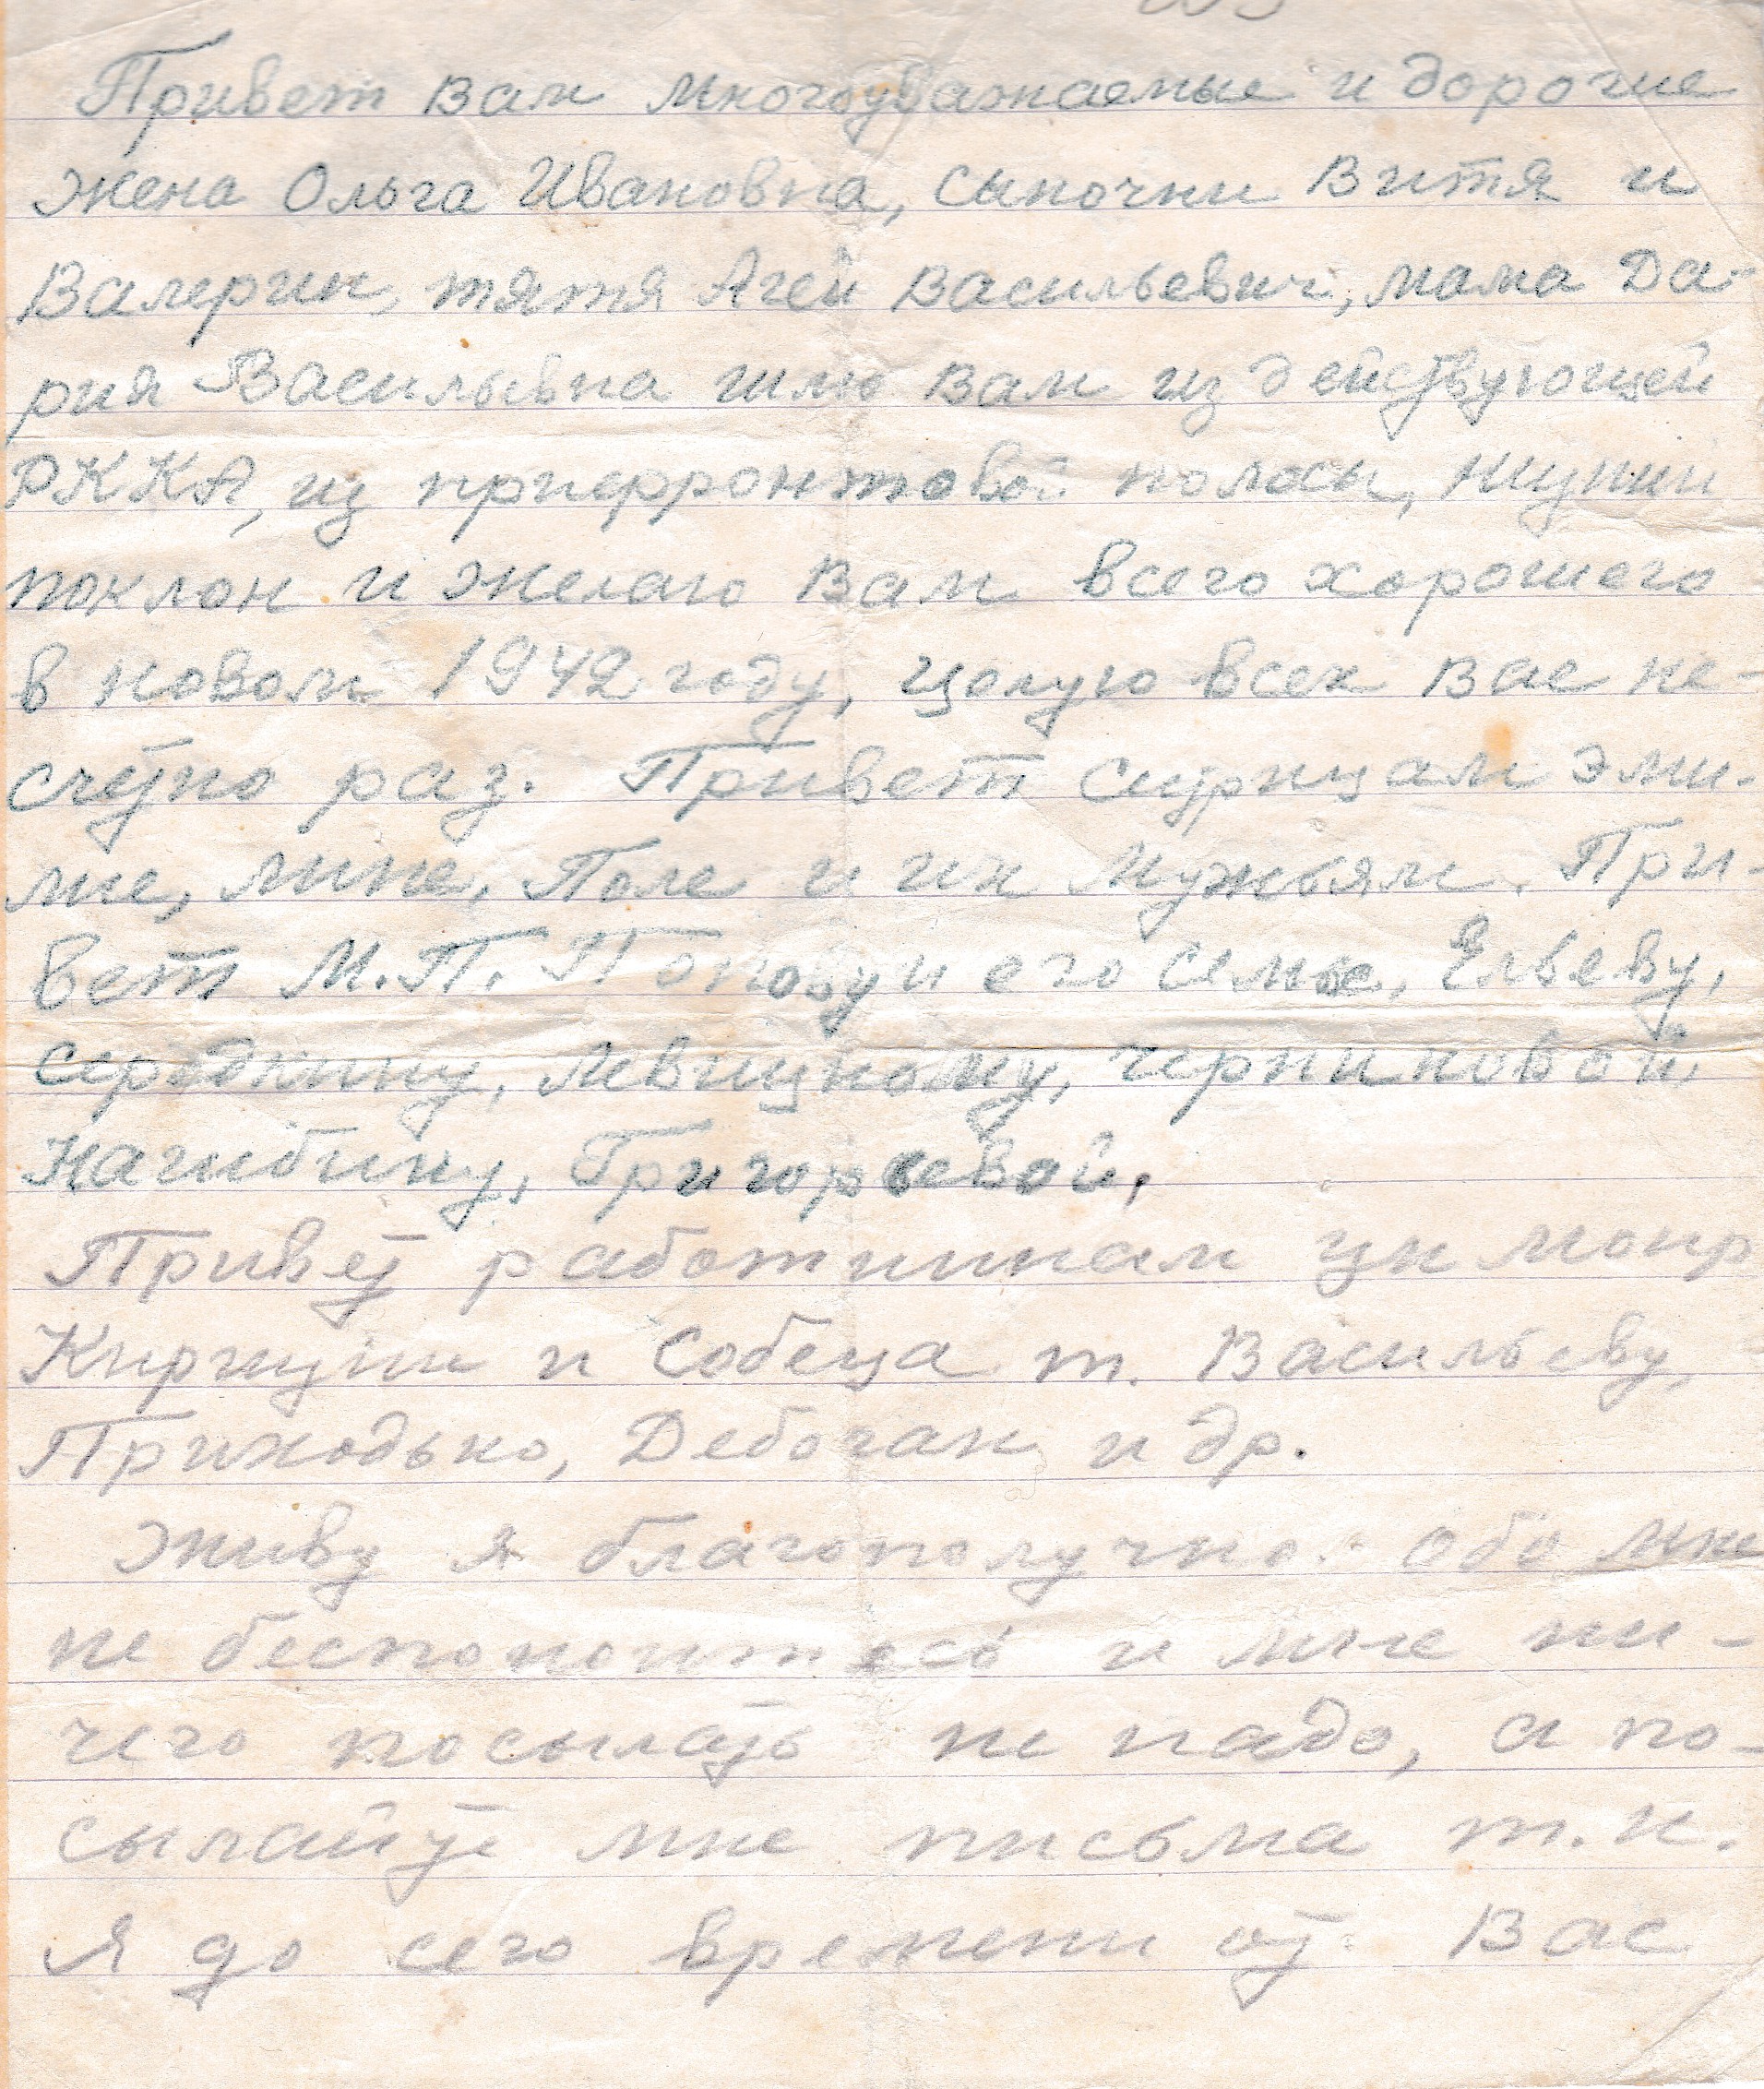 Привет Вам многоуважаемые и дорогие
жена Ольга Ивановна, сыночки Витя и
Валерик, тятя Агей Васильевич, мама Да-
рия Васильевна шлю Вам из действующей
РККА, из прифронтовой полосы, низкий
поклон и желаю Вам всего хорошего
в новом 1942 году, целую всех Вас не-
счетно раз. Привет сестрицам Эми-
лие, Лине, Поле и их мужьям. При-
вет М.П. Попову и его семье, Ельеву,
Середкину, Левицкому, Черниковой,
Нагибину, Григорьевой,
Привет работникам цк мопр
Киргизии и Собеса т. Васильеву,
Приходько, и др.
Живу я благополучно. обо мне
не беспокоитесь и мне ни-
чего посылать не надо, а по-
сылайте мне письма т.к.
я до сего времени от Вас